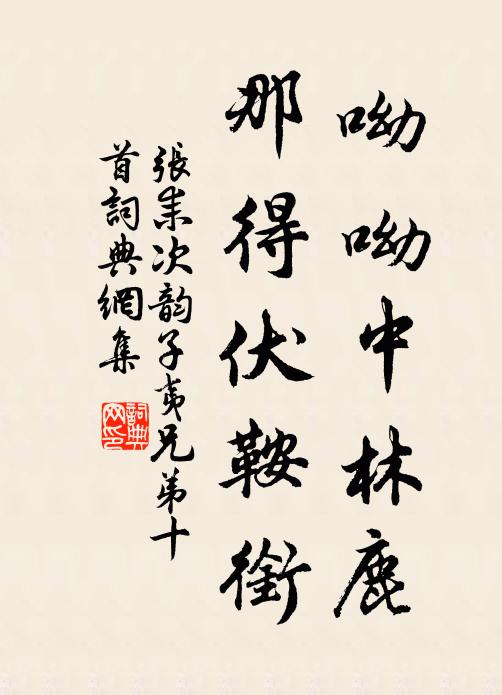 呦呦中林鹿
那得伏鞍銜
張耒次韵子夷兄弟十
首詞典網集
詞典
网印